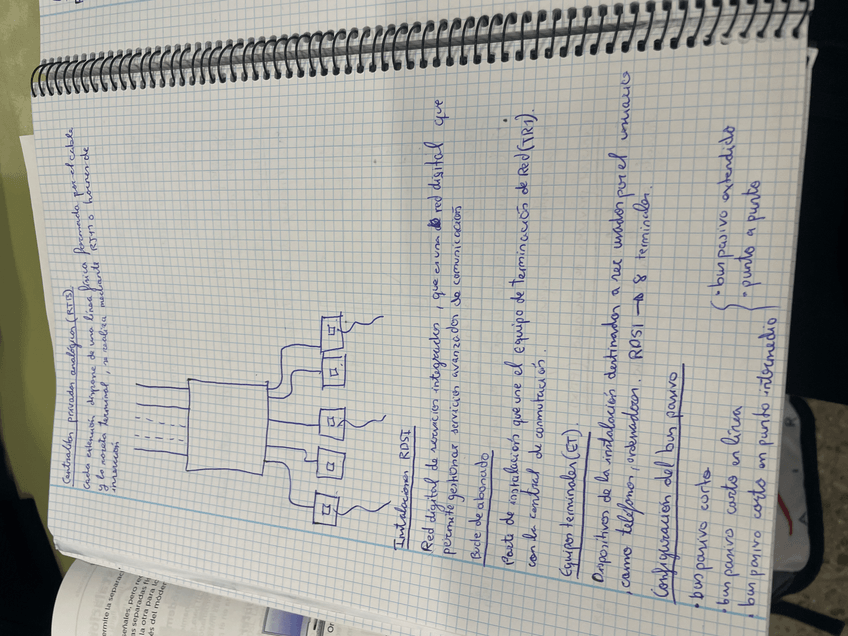 Centralitas privadas analógicas (RTB)
Cada extensión dispone de una línea física formada por el cable
y la roseta terminal, se realiza mediante RJ11 o bornes de
inserción
Instalaciones RDSI
Red digital de servicios integrados, que es una red digital que
permite gestionar servicios avanzados de comunicación
Bucle de abonado
Parte de instalación que une el equipo de terminación de Red (TR1).
con la central de conmutación.
Equipos terminales (ET)
Dispositivos de la instalación destinados a ser usados por el usuario
como telefonos, ordenadores. RDSI → 8 terminales.
Configuración del bus pasivo
• bus pasivo corto
• bus pasivo corto en línea
• bus pasivo corto en punto intermedio
• bus pasivo extendido
• punto a punto
ermite la separac
eñales, pero re
as separadas
la otra para
és del móde